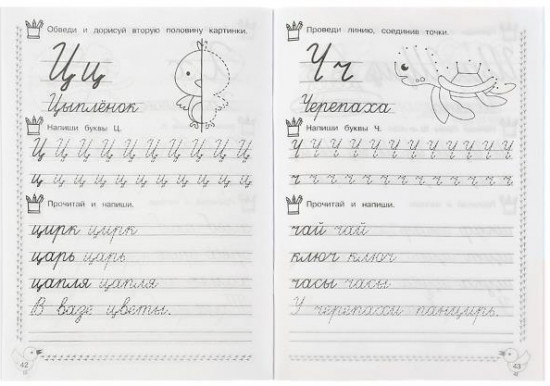 Обведи и дорисуй вторую половину картинки.
Ц ц
Цыплёнок
Напиши буквы Ц.
Ц Ц Ц Ц Ц Ц Ц Ц Ц Ц
ц ц ц ц ц ц ц ц ц ц ц
Прочитай и напиши.
цирк цирк
царь царь
цапля цапля
В вазе цветы.
42
Проведи линию, соединив точки.
Ч ч
Черепаха
Напиши буквы Ч.
Ч Ч Ч Ч Ч Ч Ч Ч Ч Ч
ч ч ч ч ч ч ч ч ч ч ч
Прочитай и напиши.
чай чай
ключ ключ
часы часы
У черепахи панцирь.
43